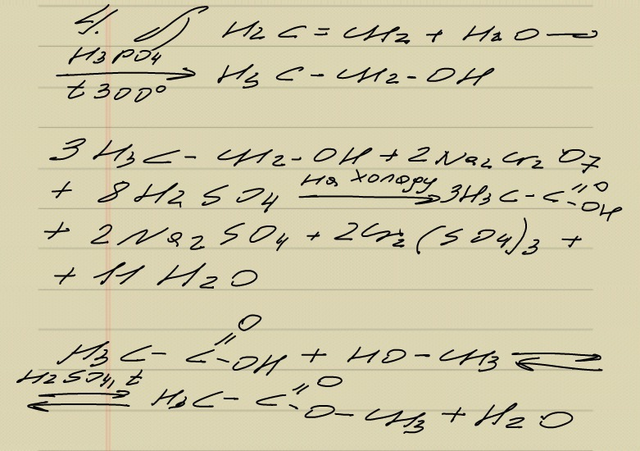 4. б) H2C=CH2 + H2O →
H3PO4 → H3C-CH2-OH
t 300°
3H3C-CH2-OH + 2Na2Cr2O7
+ 8H2SO4 на холоду → 3H3C-C=O-OH
+ 2Na2SO4 + 2Cr2(SO4)3 +
+ 11H2O
H3C-C=O-OH + HO-CH3 ⇄
H2SO4, t ⇄ H3C-C=O-O-CH3 + H2O